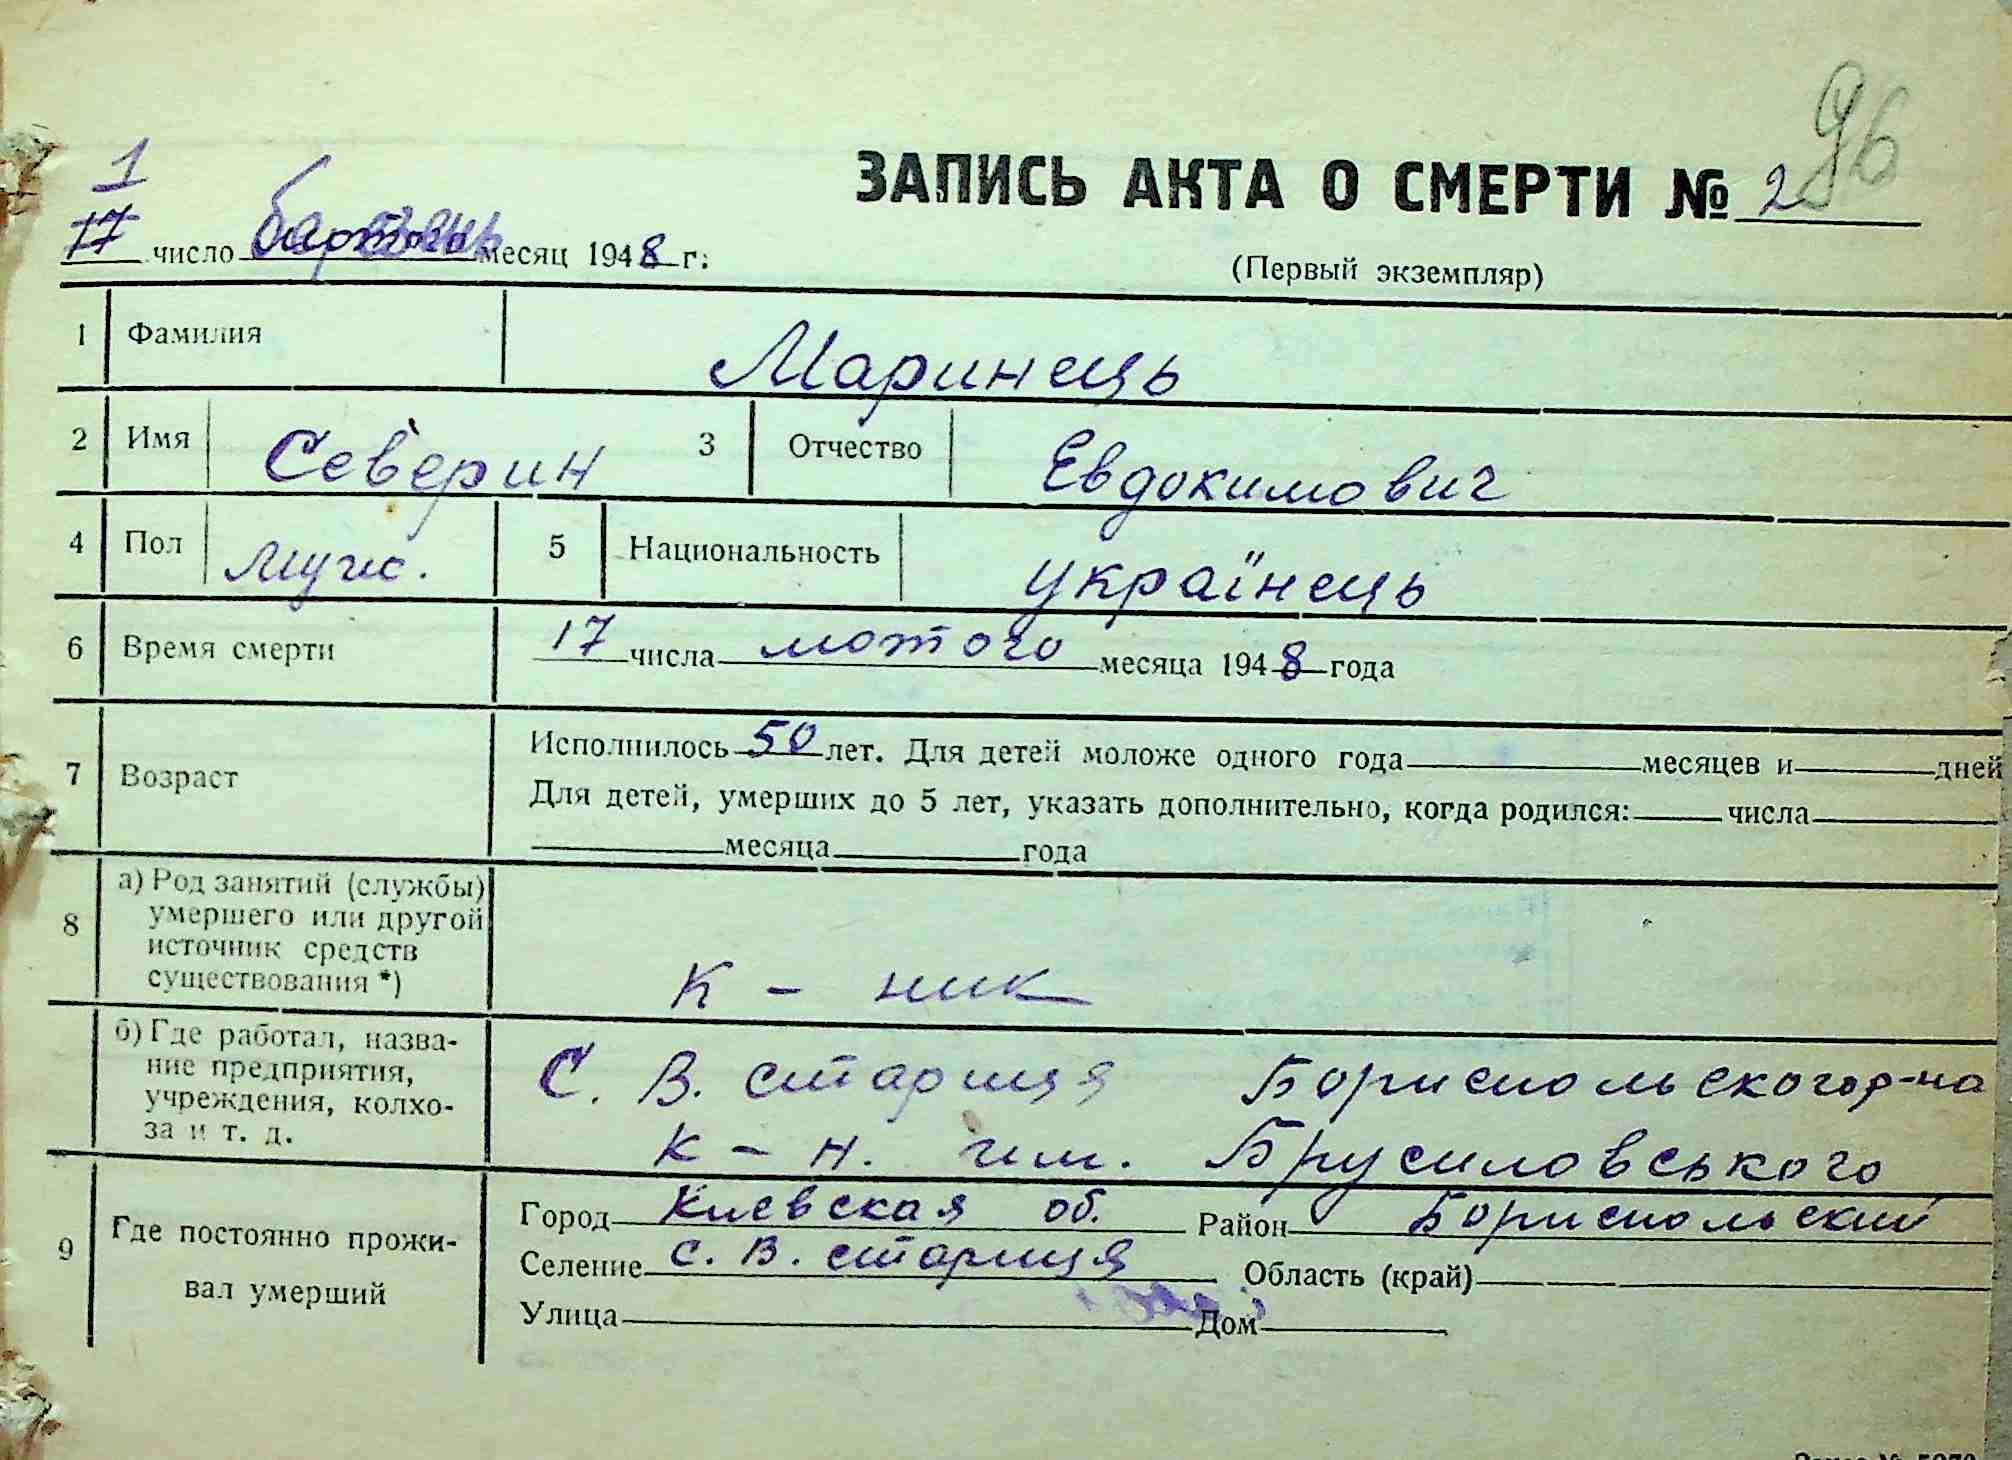 96
ЗАПИСЬ АКТА О СМЕРТИ № 2
1
17 число месяц 1948 г.
(Первый экземпляр)
1 Фамилия Маринець
2 Имя Северин 3 Отчество Евдокимович
4 Пол Муж. 5 Национальность українець
6 Время смерти 17 числа лютого месяца 1948 года
7 Возраст
Исполнилось 50 лет. Для детей моложе одного года месяцев и дней
Для детей, умерших до 5 лет, указать дополнительно, когда родился: числа
месяца года
8
а) Род занятий (службы)
умершего или другой
источник средств
существования *)
к - ник
б) Где работал, назва-
ние предприятия,
учреждения, колхо-
за и т. д.
С. В. стариця Бориспольского р-на
к - н. им. Брусиловського
9 Где постоянно прожи-
вал умерший
Город Киевская об. Район Бориспольский
Селение с. В. стариця Область (край)
Улица Дом